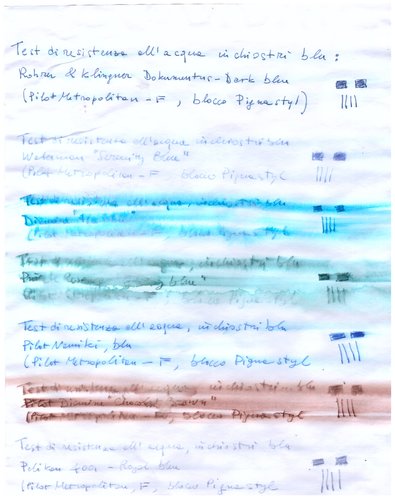 Test di resistenza all'acqua inchiostri blu:
Rohrer & Klingner Dokumentus - Dark blu
(Pilot Metropolitan - F, blocco Pigna styl)
Test di resistenza all'acqua, inchiostri blu
Waterman "Serenity Blue"
(Pilot Metropolitan - F, blocco Pigna styl
Test di resistenza all'acqua, inchiostri blu
Diamine
(Pilot Metropolitan - F, blocco Pigna styl
Test di resistenza all'acqua, inchiostri blu
blu"
blocco Pigna styl
Test di resistenza all'acqua, inchiostri blu
Pilot Namiki, blu
(Pilot Metropolitan - F, blocco Pigna styl
Test di resistenza all'acqua, inchiostri blu
Pilot Diamine "Chocolate Brown"
(Pilot Metropolitan - F, blocco Pigna styl
Test di resistenza all'acqua, inchiostri blu
Pelikan 4001 - Royal blu
(Pilot Metropolitan, F, blocco Pigna styl